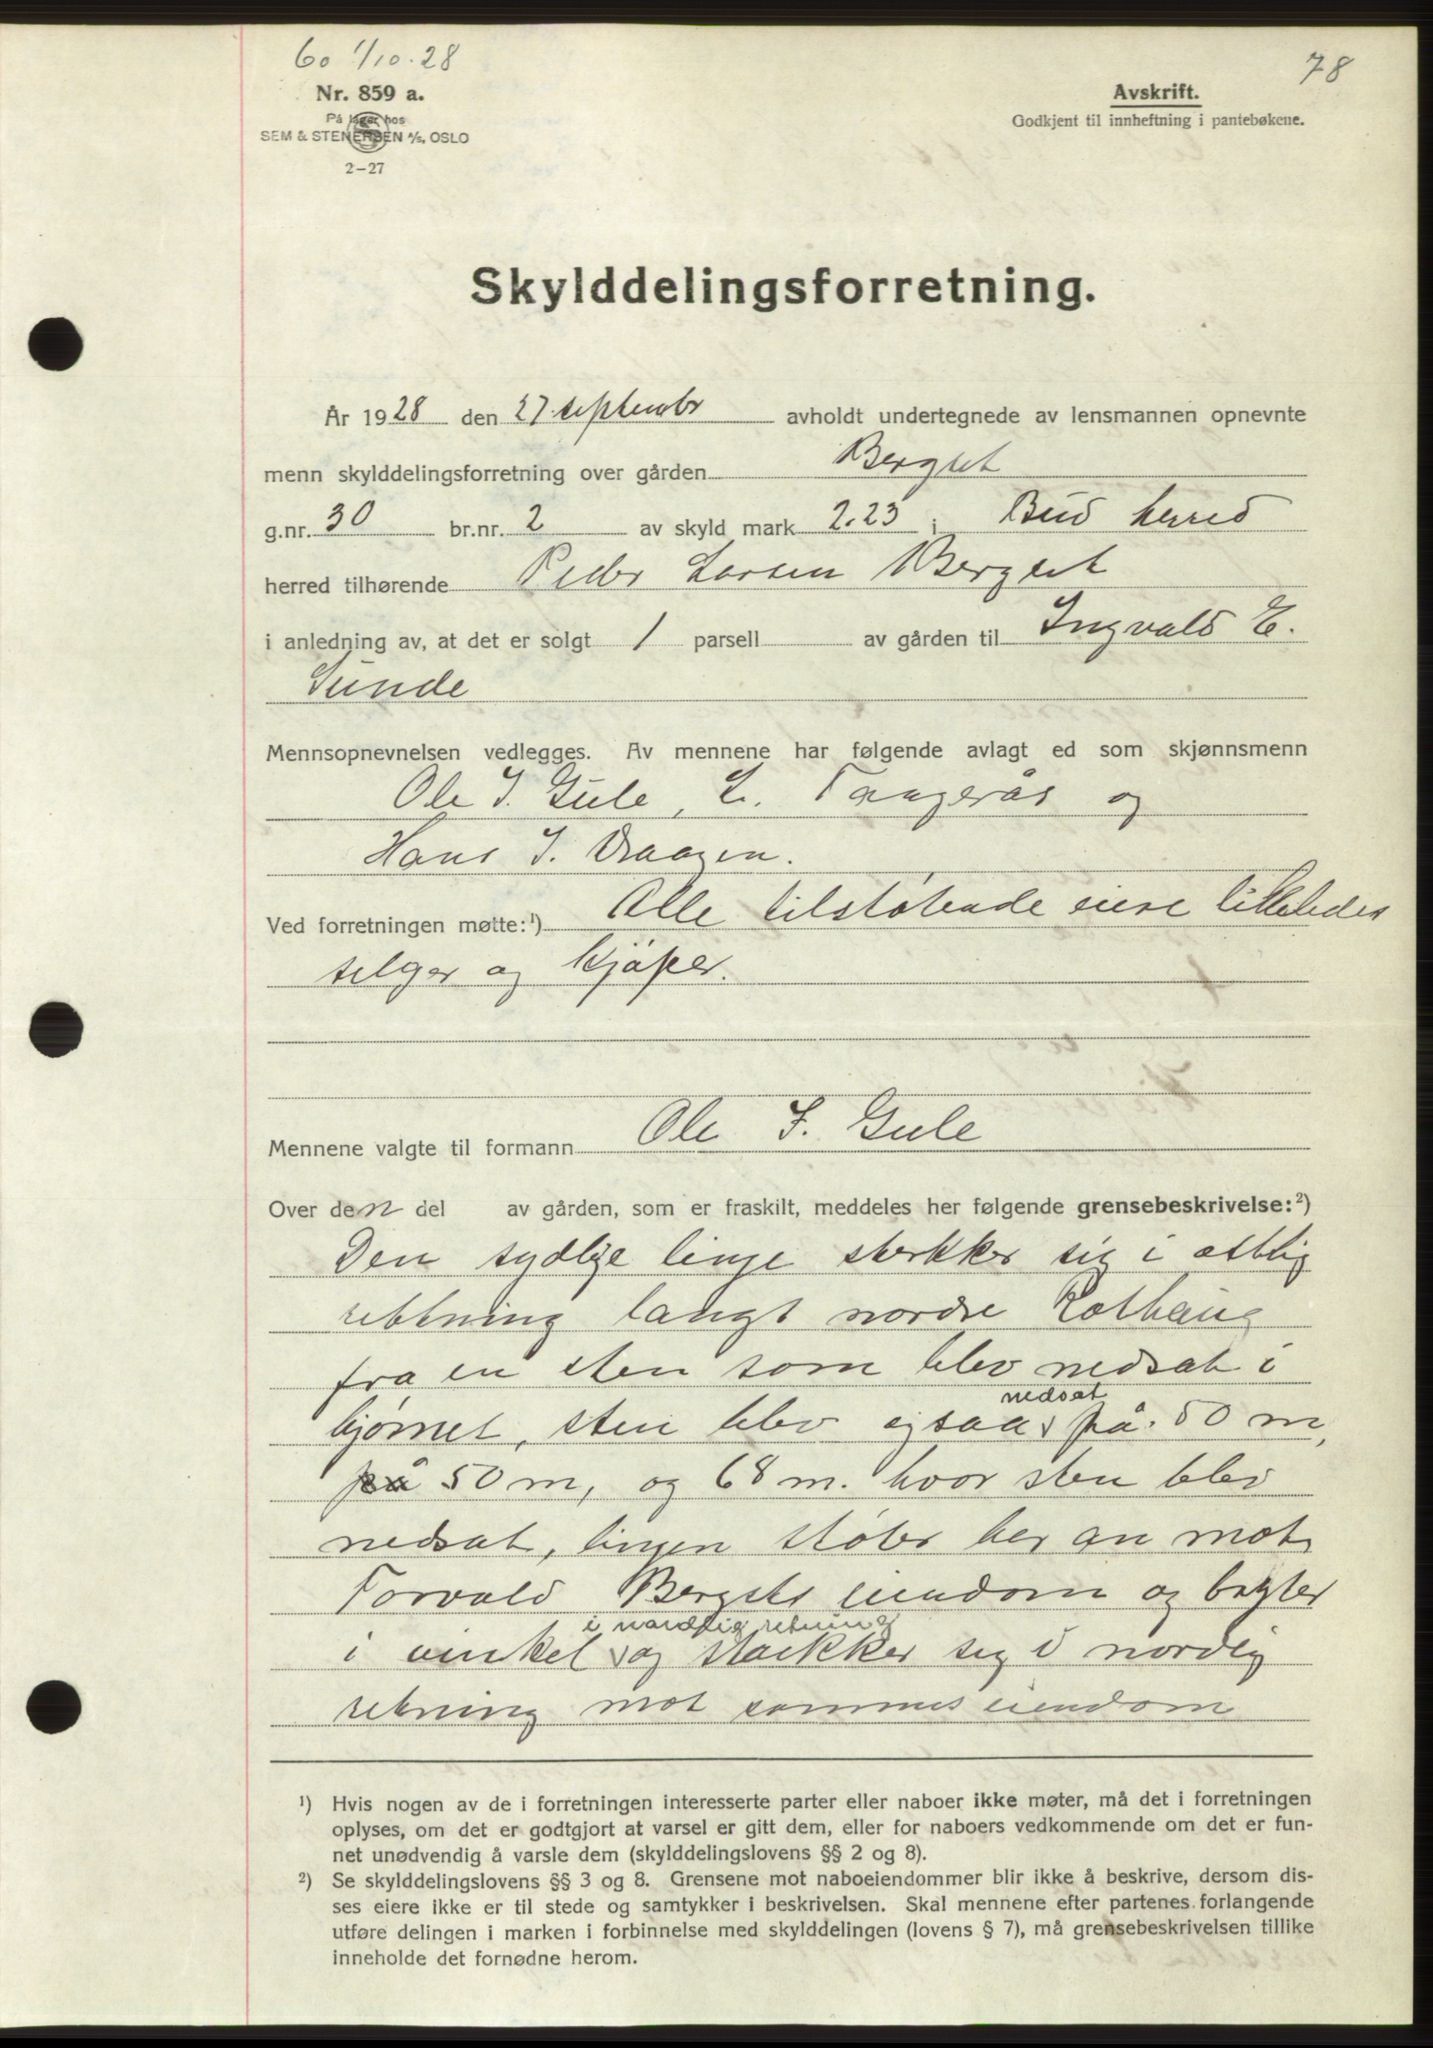 60 1/10-28
78
Nr. 859 a.
På lager hos
SEM & STENERSEN A/S, OSLO
2-27
Avskrift.
Godkjent til innheftning i pantebøkene.
Skylddelingsforretning.
År 1928 den 27 septembr avholdt undertegnede av lensmannen opnevnte
menn skylddelingsforretning over gården Bergset
g.nr. 30 br.nr. 2 av skyld mark 2.23 i Bud herred
herred tilhørende Peder Larsen Bergset
i anledning av, at det er solgt 1 parsell av gården til Ingvald E.
Sunde
Mennsopnevnelsen vedlegges. Av mennene har følgende avlagt ed som skjønnsmenn
Ole I. Gule, L. Tangerås og
Hans I. Vraagen.
Ved forretningen møtte:¹) Alle tilstøtende eiere likeledes
selger og kjøper.
Mennene valgte til formann Ole I. Gule
Over den del av gården, som er fraskilt, meddeles her følgende grensebeskrivelse:²)
Den sydlige linje strekker sig i østlig
rettning langt nordre Rothaug
fra en sten som blev nedsat i
hjørnet, sten blev ogsaa nedsat på 50 m,
på 50 m, og 68 m. hvor sten blev
nedsat, linjen støter her an mot
Torvald Bergsets eiendom og bøyter
i vinkel i nordlig retning og strekker sig i nordlig
retning mot sammes eiendom
¹) Hvis nogen av de i forretningen interesserte parter eller naboer ikke møter, må det i forretningen
oplyses, om det er godtgjort at varsel er gitt dem, eller for naboers vedkommende om det er fun-
net unødvendig å varsle dem (skylddelingslovens §§ 2 og 8).
²) Se skylddelingslovens §§ 3 og 8. Grensene mot naboeiendommer blir ikke å beskrive, dersom dis-
ses eiere ikke er til stede og samtykker i beskrivelsen. Skal mennene efter partenes forlangende
utføre delingen i marken i forbinnelse med skylddelingen (lovens § 7), må grensebeskrivelsen tillike
inneholde det fornødne herom.